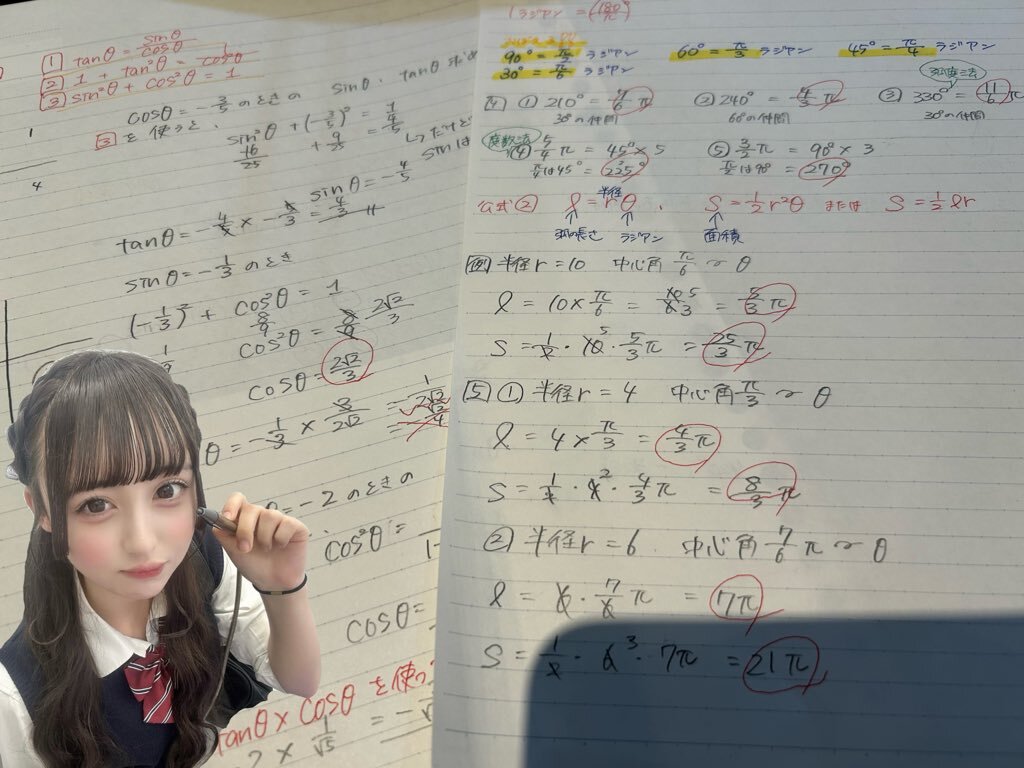 1 tanθ = sinθ/cosθ
2 1 + tan²θ = 1/cos²θ
3 sin²θ + cos²θ = 1
cosθ = -3/5 のときの sinθ・tanθ
3 を使うと、
sin²θ + (-3/5)² = 1
16/25 + 9/25
sinθ = -4/5
tanθ = -4/5 × -5/3 = 4/3
sinθ = -1/3 のとき
(-1/3)² + cos²θ = 1
8/9
1/9
cos²θ = 8/9 2√2/3
cosθ = 2√2/3
θ = -1/3 × 3/2√2 = -1/2√2
= -2のときの
cos²θ =
cosθ =
tanθ × cosθ を使っ
2 × 1/√5 = -
1ラジアン = (180/π)°
90° = π/2 ラジアン 60° = π/3 ラジアン 45° = π/4 ラジアン
30° = π/6 ラジアン
弧度法
[4] ① 210° = 7/6 π ② 240° = 4/3 π ③ 330° = 11/6 π
30°の仲間 60°の仲間 30°の仲間
度数法
④ 5/4 π = 45° × 5 ⑤ 3/2 π = 90° × 3
π/4は45° = 225° π/2は90° = 270°
半径
公式② l = rθ . S = 1/2 r²θ または S = 1/2 lr
弧の長さ ラジアン 面積
例 半径r = 10 中心角 π/6 〜 θ
l = 10 × π/6 = 10 5/6 3 = 5/3 π
S = 1/2 · 10 5 · 5/3 π = 25/3 π
[5] ① 半径r = 4 中心角 π/3 〜 θ
l = 4 × π/3 = 4/3 π
S = 1/2 · 4 2 · 4/3 π = 8/3 π
② 半径r = 6 中心角 7/6 π 〜 θ
l = 6 · 7/6 π = 7π
S = 1/2 · 6 3 · 7π = 21π